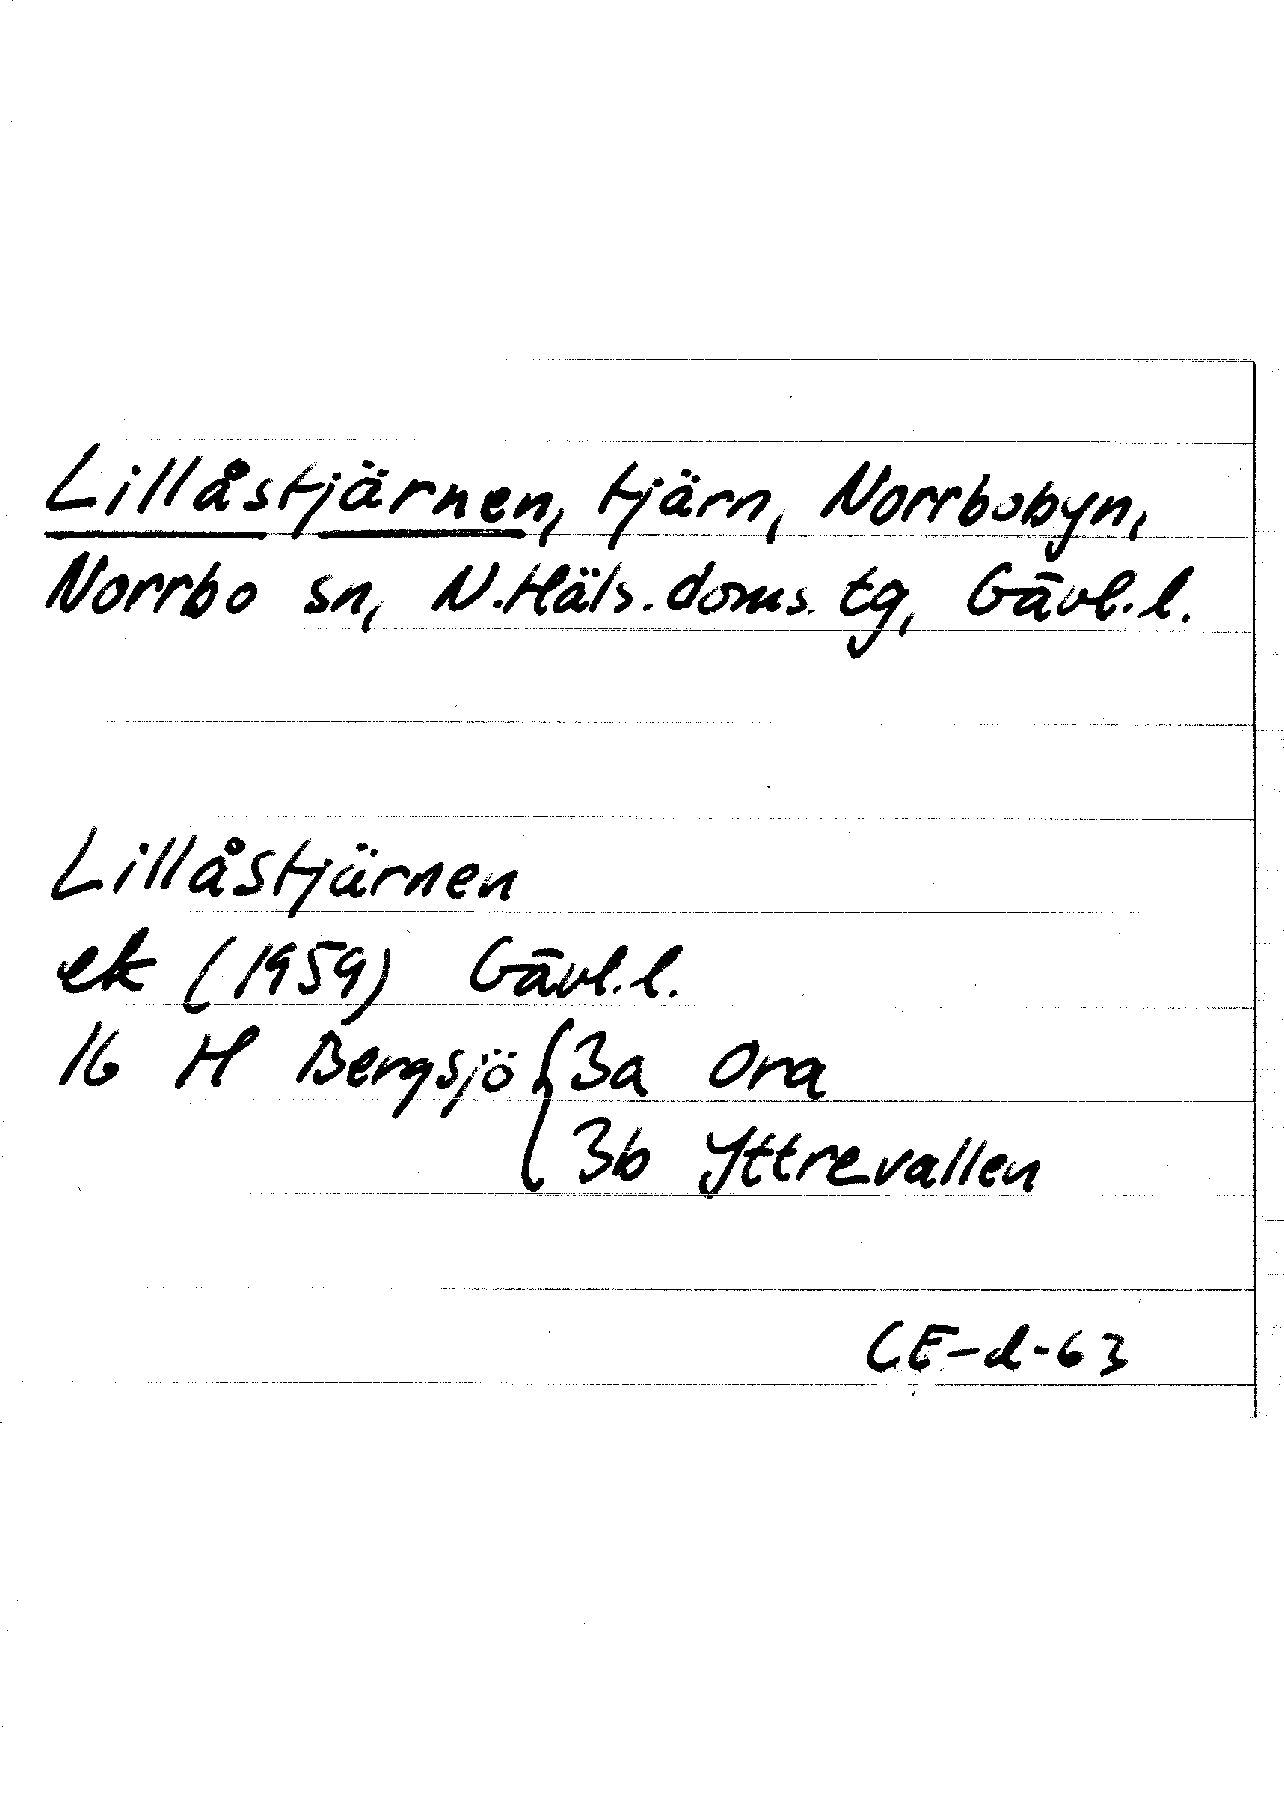 Lillåstjärnen, tjärn, Norrbobyn,
Norrbo sn, N.Häls.doms.tg, Gävl.l.
Lillåstjärnen
ek (1959) Gävl.l.
16 H Bergsjö { 3a Ora
3b Yttrevallen
CE-d-63